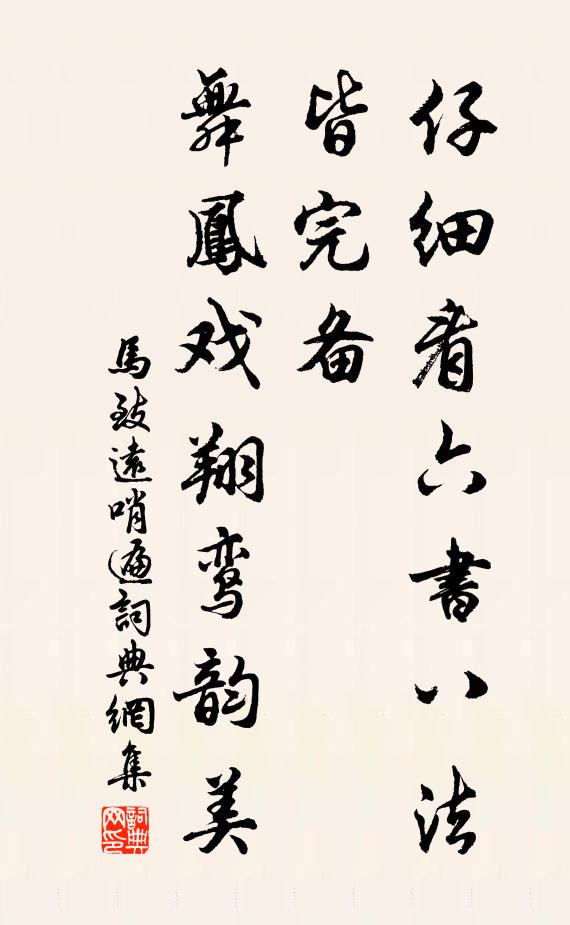 仔细看六書八法
皆完备
舞鳳戏翔鸾韵美
馬致遠哨遍詞典網集
詞典网印